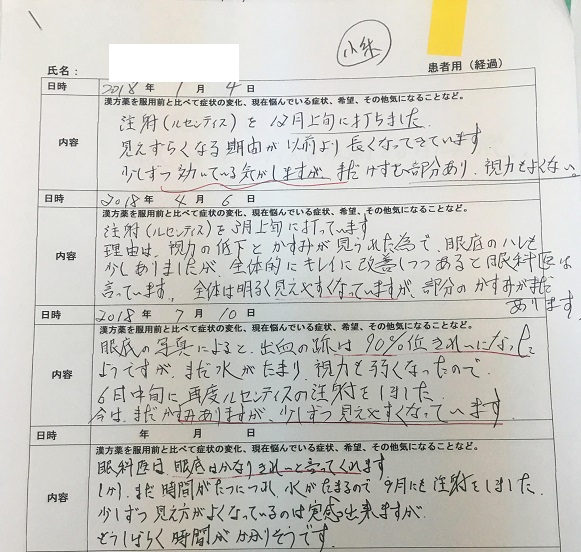 小糸
氏名： 患者用（経過）
日時 2018 年 1 月 4 日
漢方薬を服用前と比べて症状の変化、現在悩んでいる症状、希望、その他気になることなど。
注射（ルセンティス）を 12月上旬に打ちました
内容 見えずらくなる期間が以前より長くなってきています
少しずつ効いている気がしますが、まだかすむ部分あり、視力もよくない。
日時 2018 年 4 月 6 日
漢方薬を服用前と比べて症状の変化、現在悩んでいる症状、希望、その他気になることなど。
注射（ルセンティス）を3月上旬に打っています
理由は、視力の低下とかすみが見られた為で、眼底のハレも
内容 少しありましたが、全体的にキレイに改善しつつあると眼科医は
言っています。全体は明るく見えやすくなっていますが、部分のかすみがまだ
あります
日時 2018 年 7 月 10 日
漢方薬を服用前と比べて症状の変化、現在悩んでいる症状、希望、その他気になることなど。
眼底の写真によると、出血の跡は90%位きれいになった
ようですが、まだ水がたまり、視力も弱くなったので
内容 6月中旬に再度ルセンティスの注射をしました
今は、まだかすみありますが、少しずつ見えやすくなっています
日時 年 月 日
漢方薬を服用前と比べて症状の変化、現在悩んでいる症状、希望、その他気になることなど。
眼科医は、眼底はかなりきれいと言ってくれます
しかし、まだ時間がたつにつれ、水がたまるので 9月にも注射をしました
内容 少しずつ見え方がよくなっているのは実感出来ますが
もうしばらく時間がかかりそうです